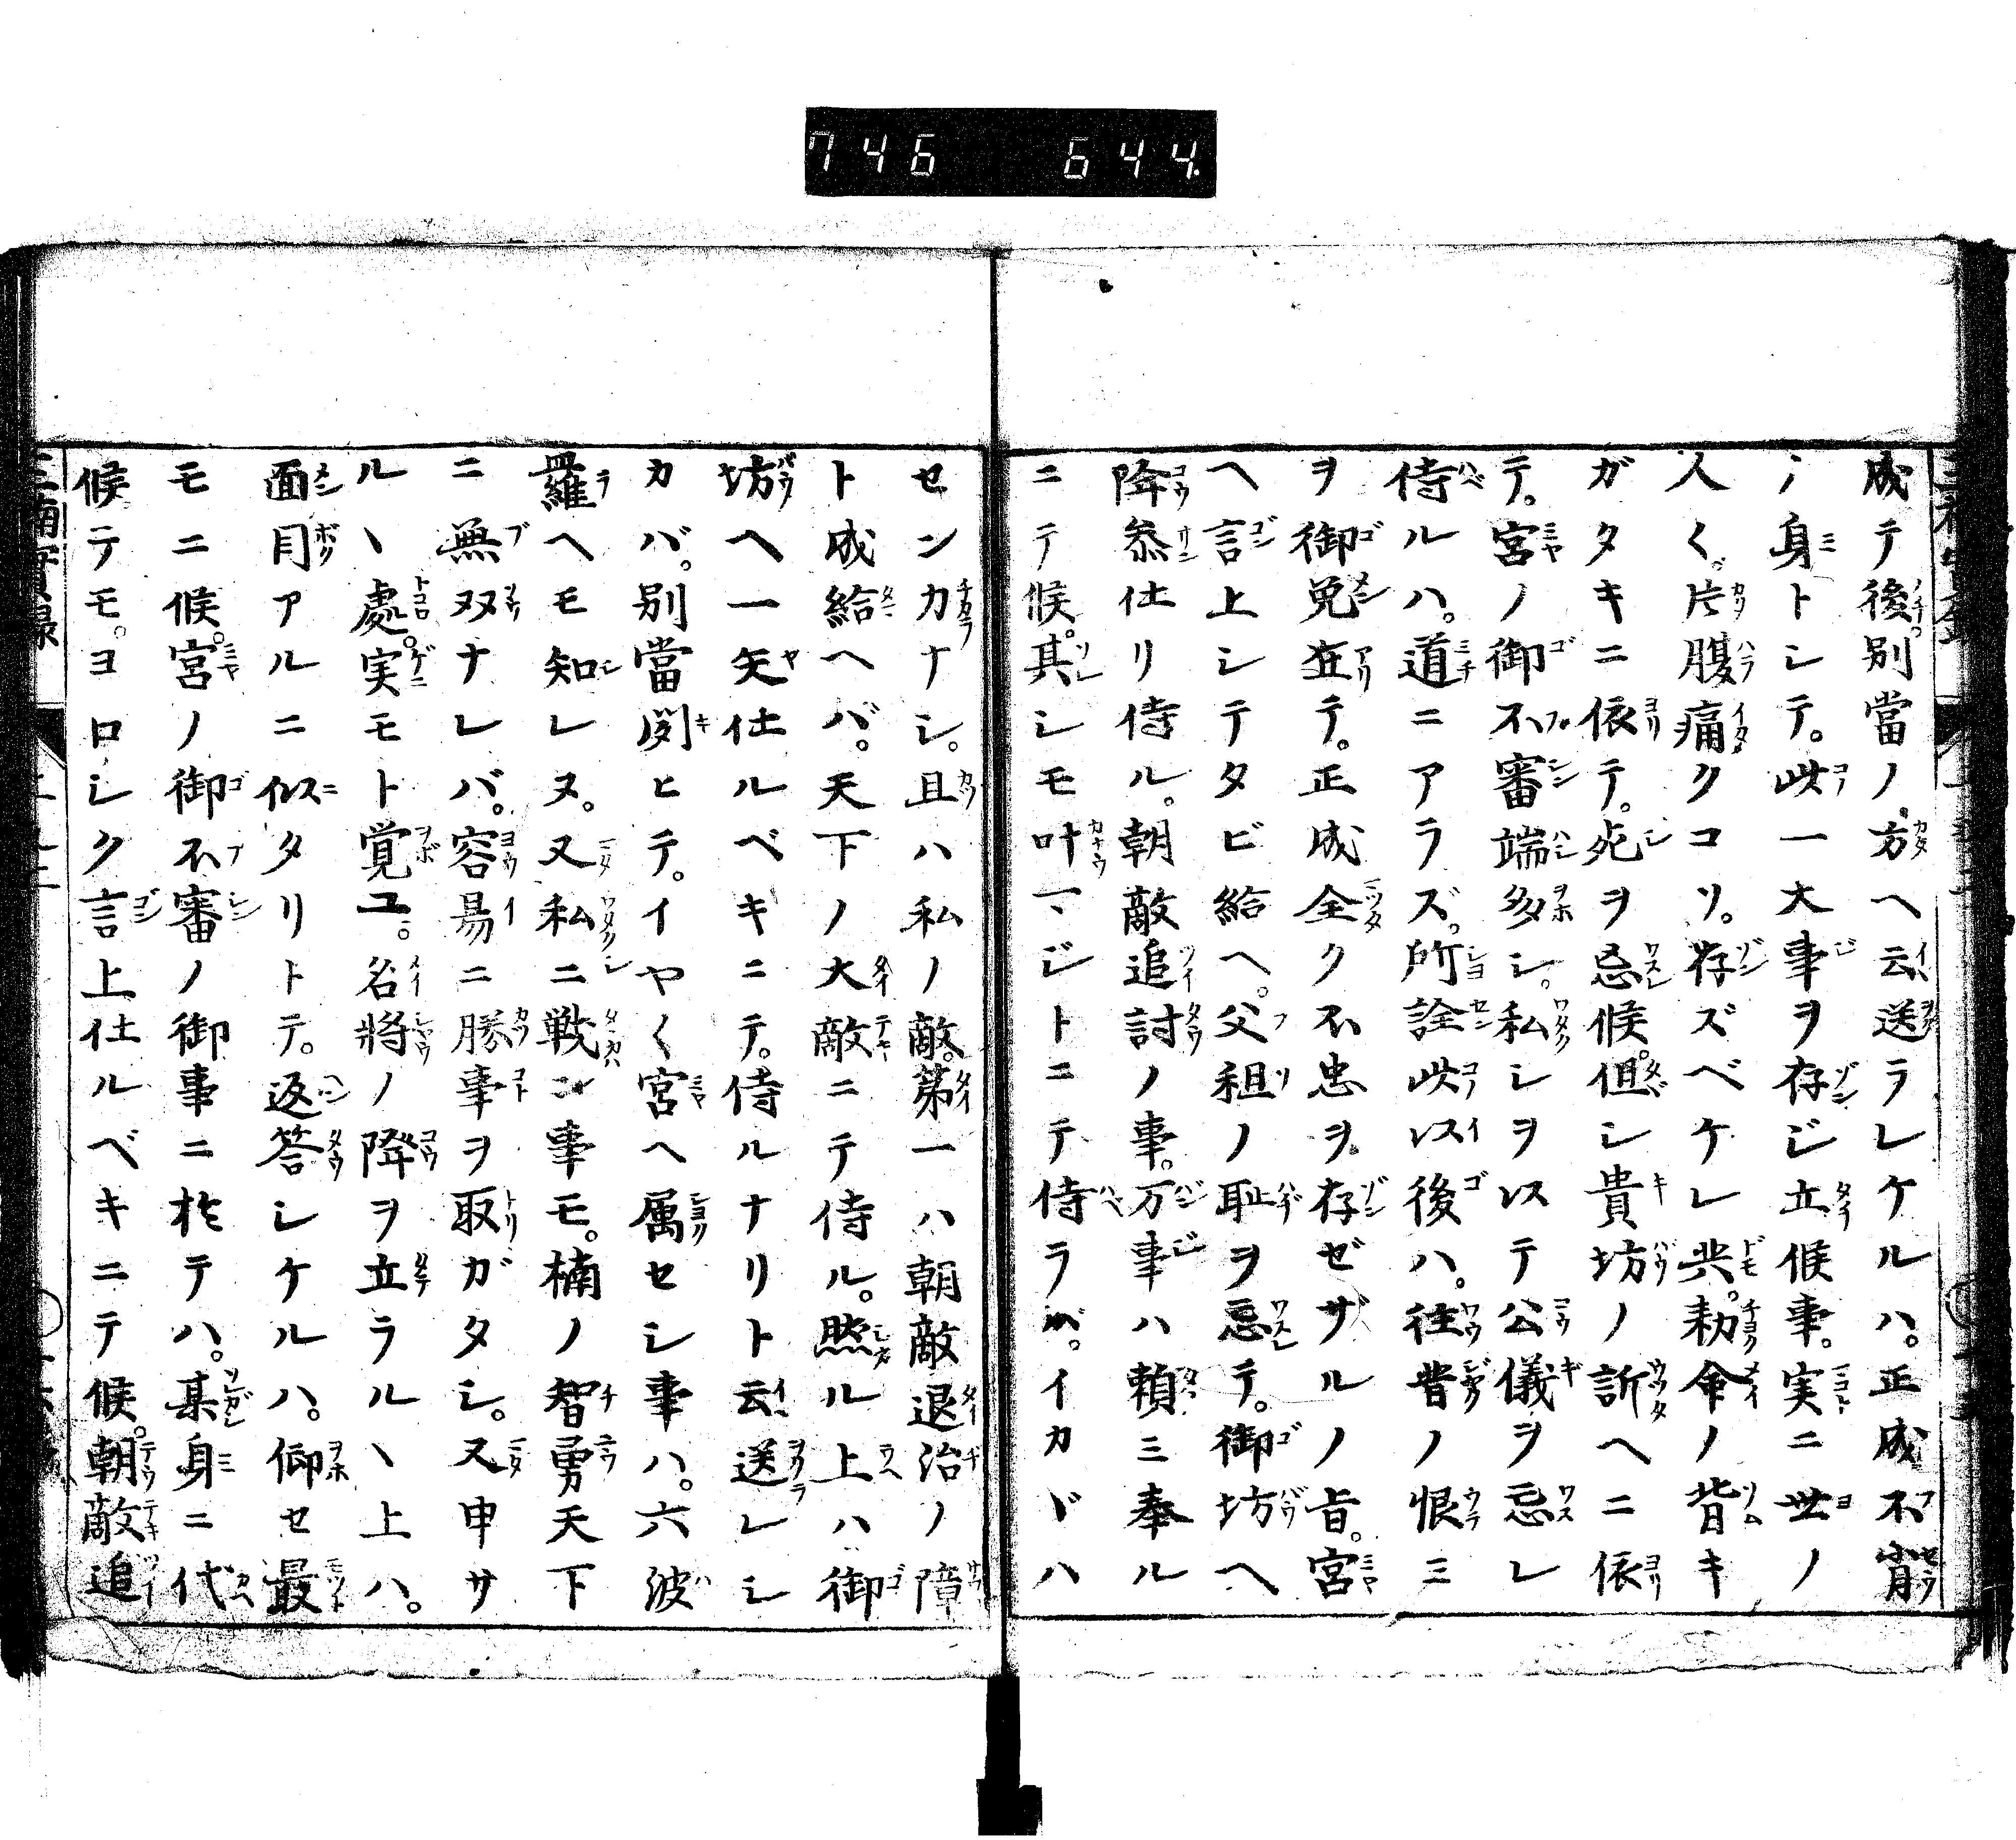 746 644
成テ後。別當ノ方ヘ云送ラレケルハ。正成不肖
ノ身トシテ。此一大事ヲ存ジ立候事。実ニ世ノ
人〱。片腹痛クコソ。存ズベケレ共。勅命ノ背キ
ガタキニ依テ。死ヲ忘候。但シ貴坊ノ訴ヘニ依
テ。宮ノ御不審端多シ。私シヲ以テ公儀ヲ忘レ
侍ルハ。道ニアラズ。所詮此以後ハ。往昔ノ恨ミ
ヲ御免在テ。正成全ク不忠ヲ存ゼザルノ旨。宮
ヘ言上シテタビ給ヘ。父祖ノ恥ヲ忘テ。御坊ヘ
降参仕リ侍ル。朝敵追討ノ事。万事ハ頼ミ奉ル
ニテ候。其シモ叶マジトニテ侍ラバ。イカヾハ
センカナシ。且ハ私ノ敵。第一ハ朝敵退治ノ障
ト成給ヘバ。天下ノ大敵ニテ侍ル。然ル上ハ御
坊ヘ一矢仕ルベキニテ。侍ルナリト云送レシ
カバ。別當聞ヒテ。イヤ〱宮ヘ属セシ事ハ。六波
羅ヘモ知レヌ。又私ニ戦ン事モ。楠ノ智勇天下
ニ無双ナレバ。容易ニ勝事ヲ取ガタシ。又申サ
ルヽ處。実モト覚ユ。名將ノ降ヲ立ラルヽ上ハ。
面目アルニ似タリトテ。返答シケルハ。仰セ最
モニ候。宮ノ御不審ノ御事ニ於テハ。某身ニ代
候テモ。ヨロシク言上仕ルベキニテ候。朝敵追